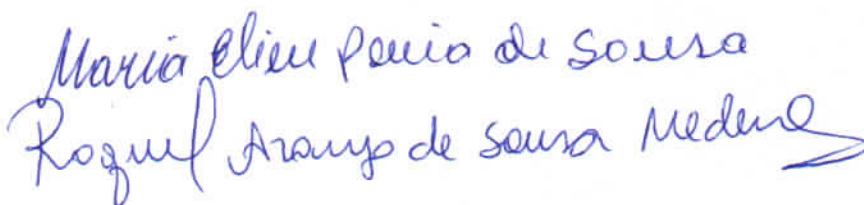 Maria Elieu Pereira de Sousa
Raquel Araujo de Sousa Medeiros